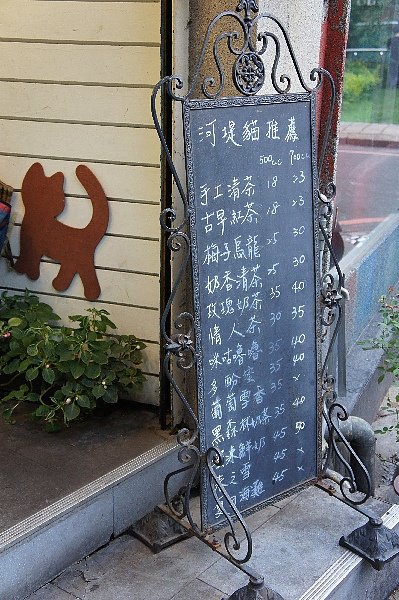 河堤貓推薦
500cc 700cc
手工清茶 18 23
古早紅茶 18 23
梅子烏龍 25 30
奶香清茶 25 30
玫瑰奶茶 35 40
情人茶 30 35
咪咕嚕嚕 35 40
多粉蜜 35 40
葡萄雪香 35 x
黑森林奶茶 35 40
鮮奶 45 50
之雪 45 x
45 x